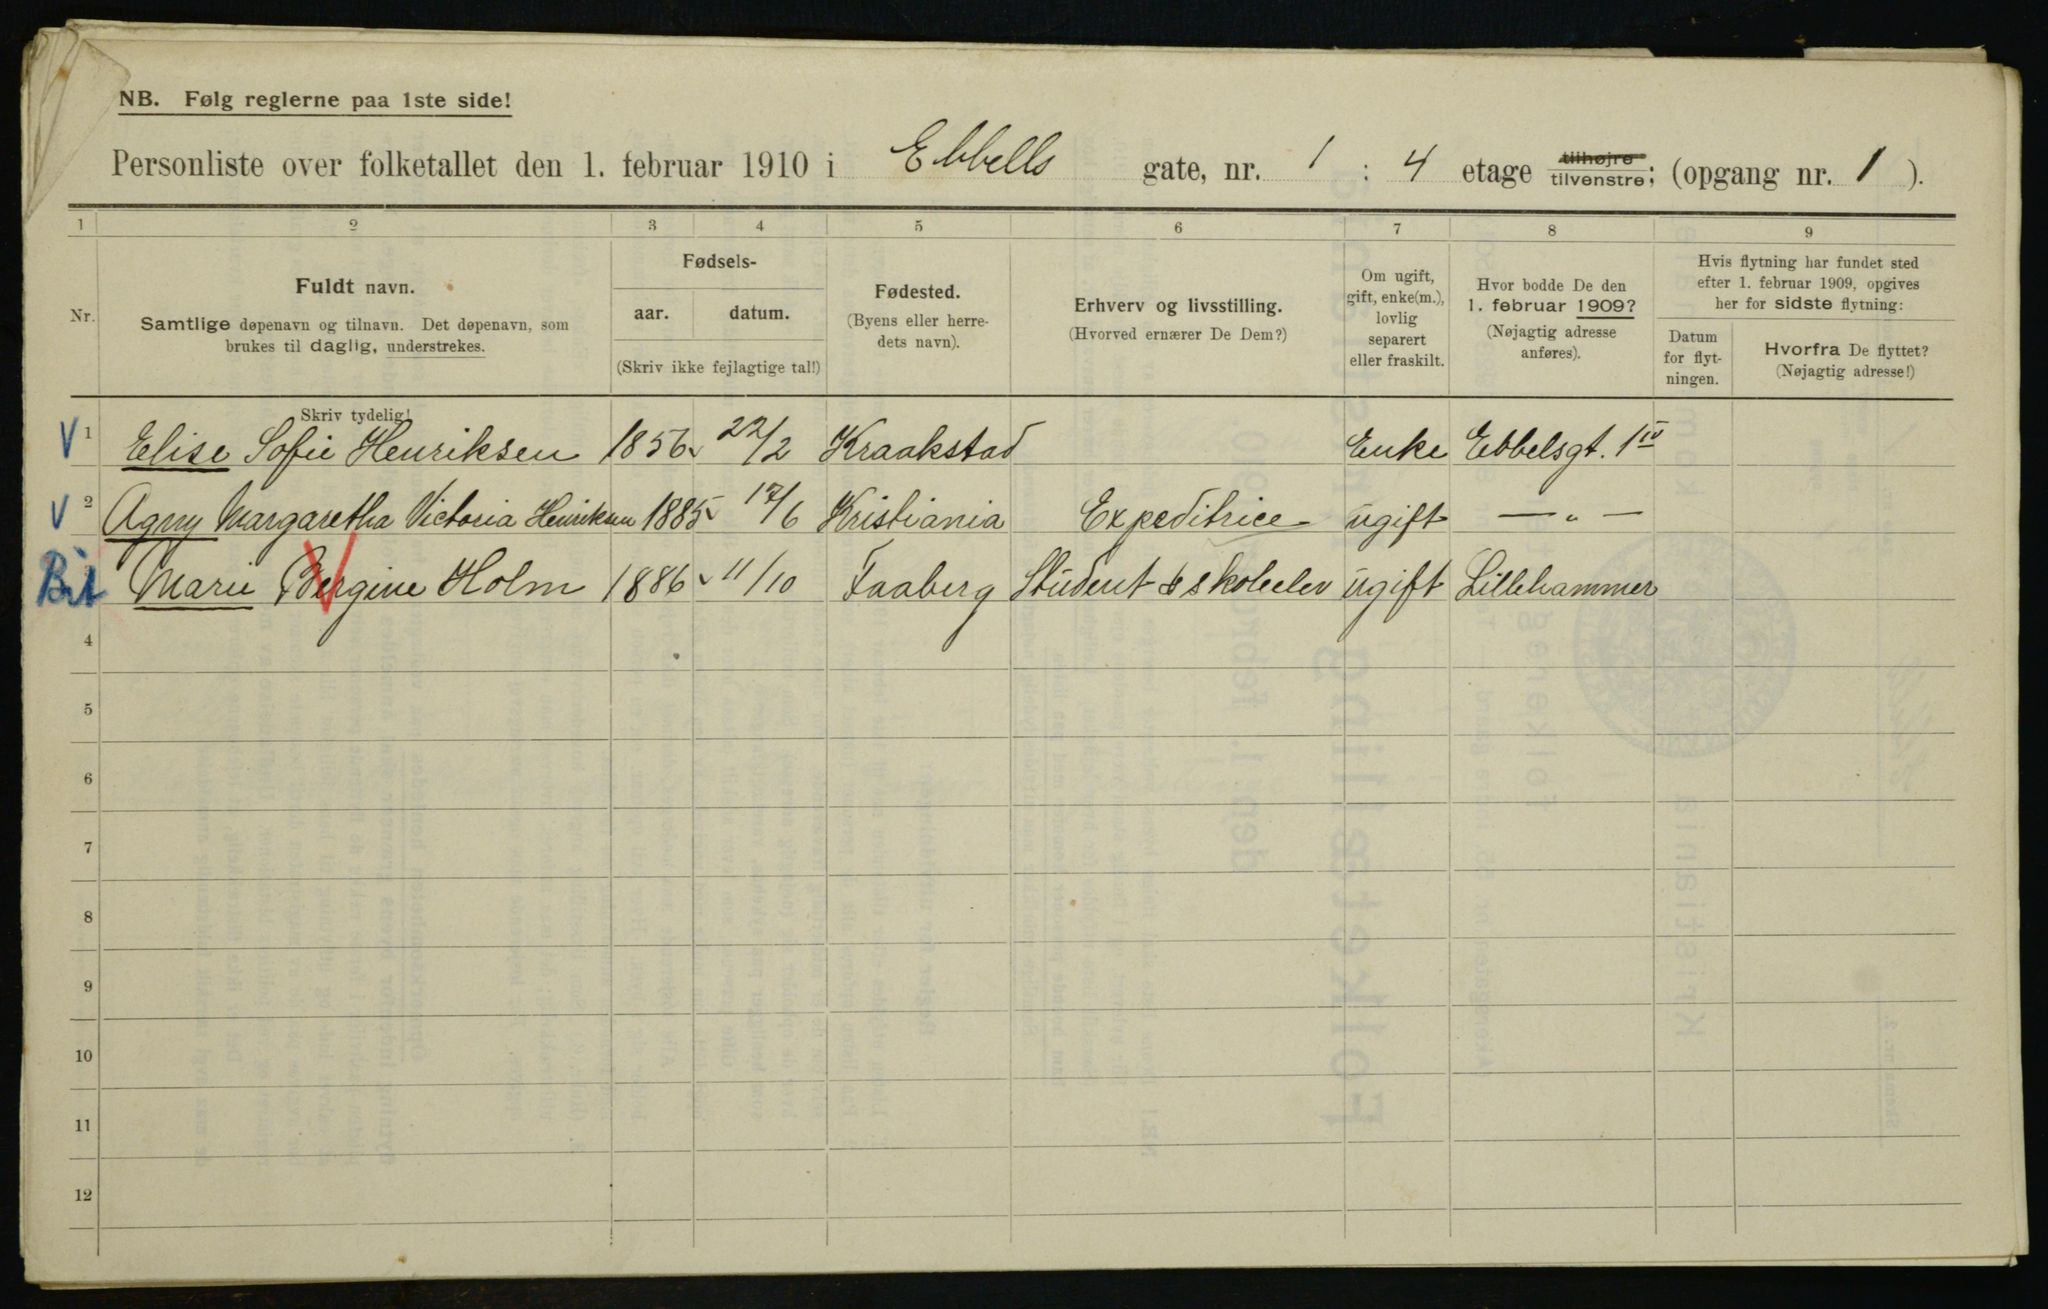 NB. Følg reglerne paa 1ste side!
Personliste over folketallet den 1. februar 1910 i Ebbells gate, nr. 1 : 4 etage tilhøjre tilvenstre; (opgang nr. 1 ).
1 2 3 4 5 6 7 8 9
Nr.
Fuldt navn.
Samtlige døpenavn og tilnavn. Det døpenavn, som
brukes til daglig, understrekes.
Skriv tydelig!
Fødsels-
aar. datum.
(Skriv ikke fejlagtige tal!)
Fødested.
(Byens eller herre-
dets navn).
Erhverv og livsstilling.
(Hvorved ernærer De Dem?)
Om ugift,
gift, enke(m.),
lovlig
separert
eller fraskilt.
Hvor bodde De den
1. februar 1909?
(Nøjagtig adresse
anføres).
Hvis flytning har fundet sted
efter 1. februar 1909, opgives
her for sidste flytning:
Datum
for flyt-
ningen.
Hvorfra De flyttet?
(Nøjagtig adresse!)
V 1 Elise Sofie Henriksen 1856 22/2 Kraakstad Enke Ebbelsgt. 1 IV
V 2 Agny Margaretha Victoria Henriksen 1885 17/6 Kristiania Expeditrice ugift — „ —
Bit Marie Bergine Holm 1886 11/10 Faaberg Student skoleelev ugift Lillehammer
4
5
6
7
8
9
10
11
12